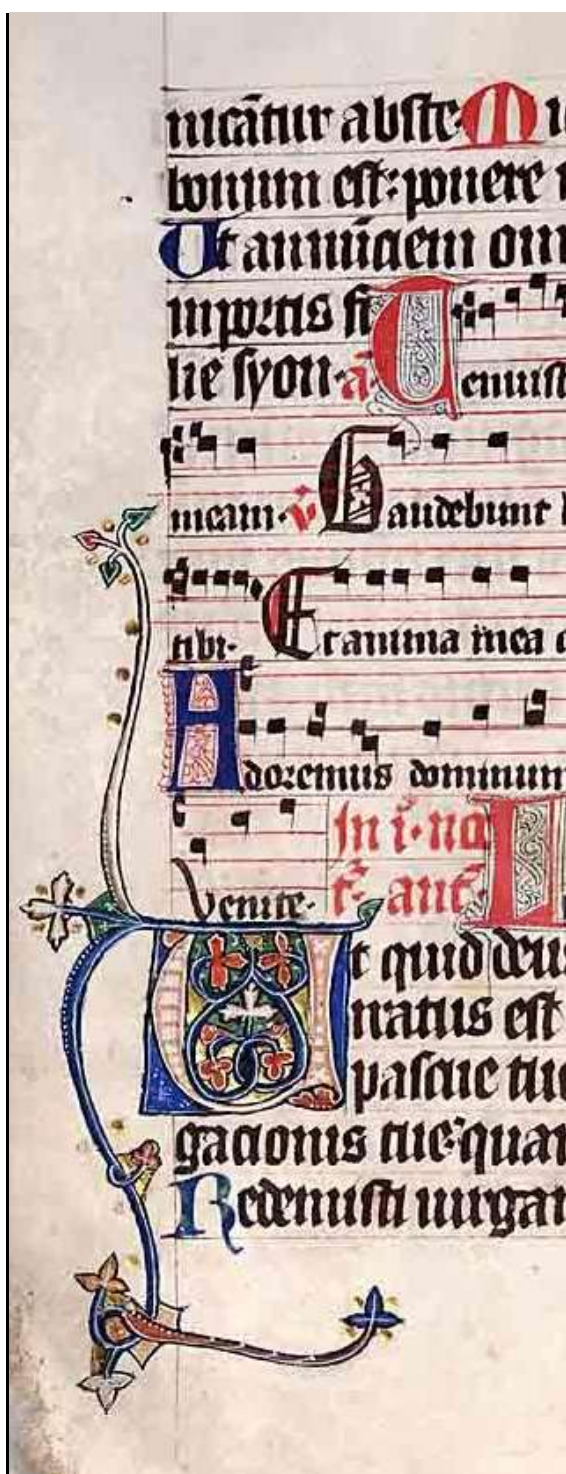 nicātur abste· M
bonum est: ponere
Ut annūciem om
in portis fi
lie syon· a͞· Tenuist
meam· v̄ Gaudebunt
tibi· Et anima mea
Adoremus dominum
In i· no
Venite· t͞· ant͞· L
Ut quid deus
iratus est
pascue tue
gacionis tue: quam
Redemisti uirgam